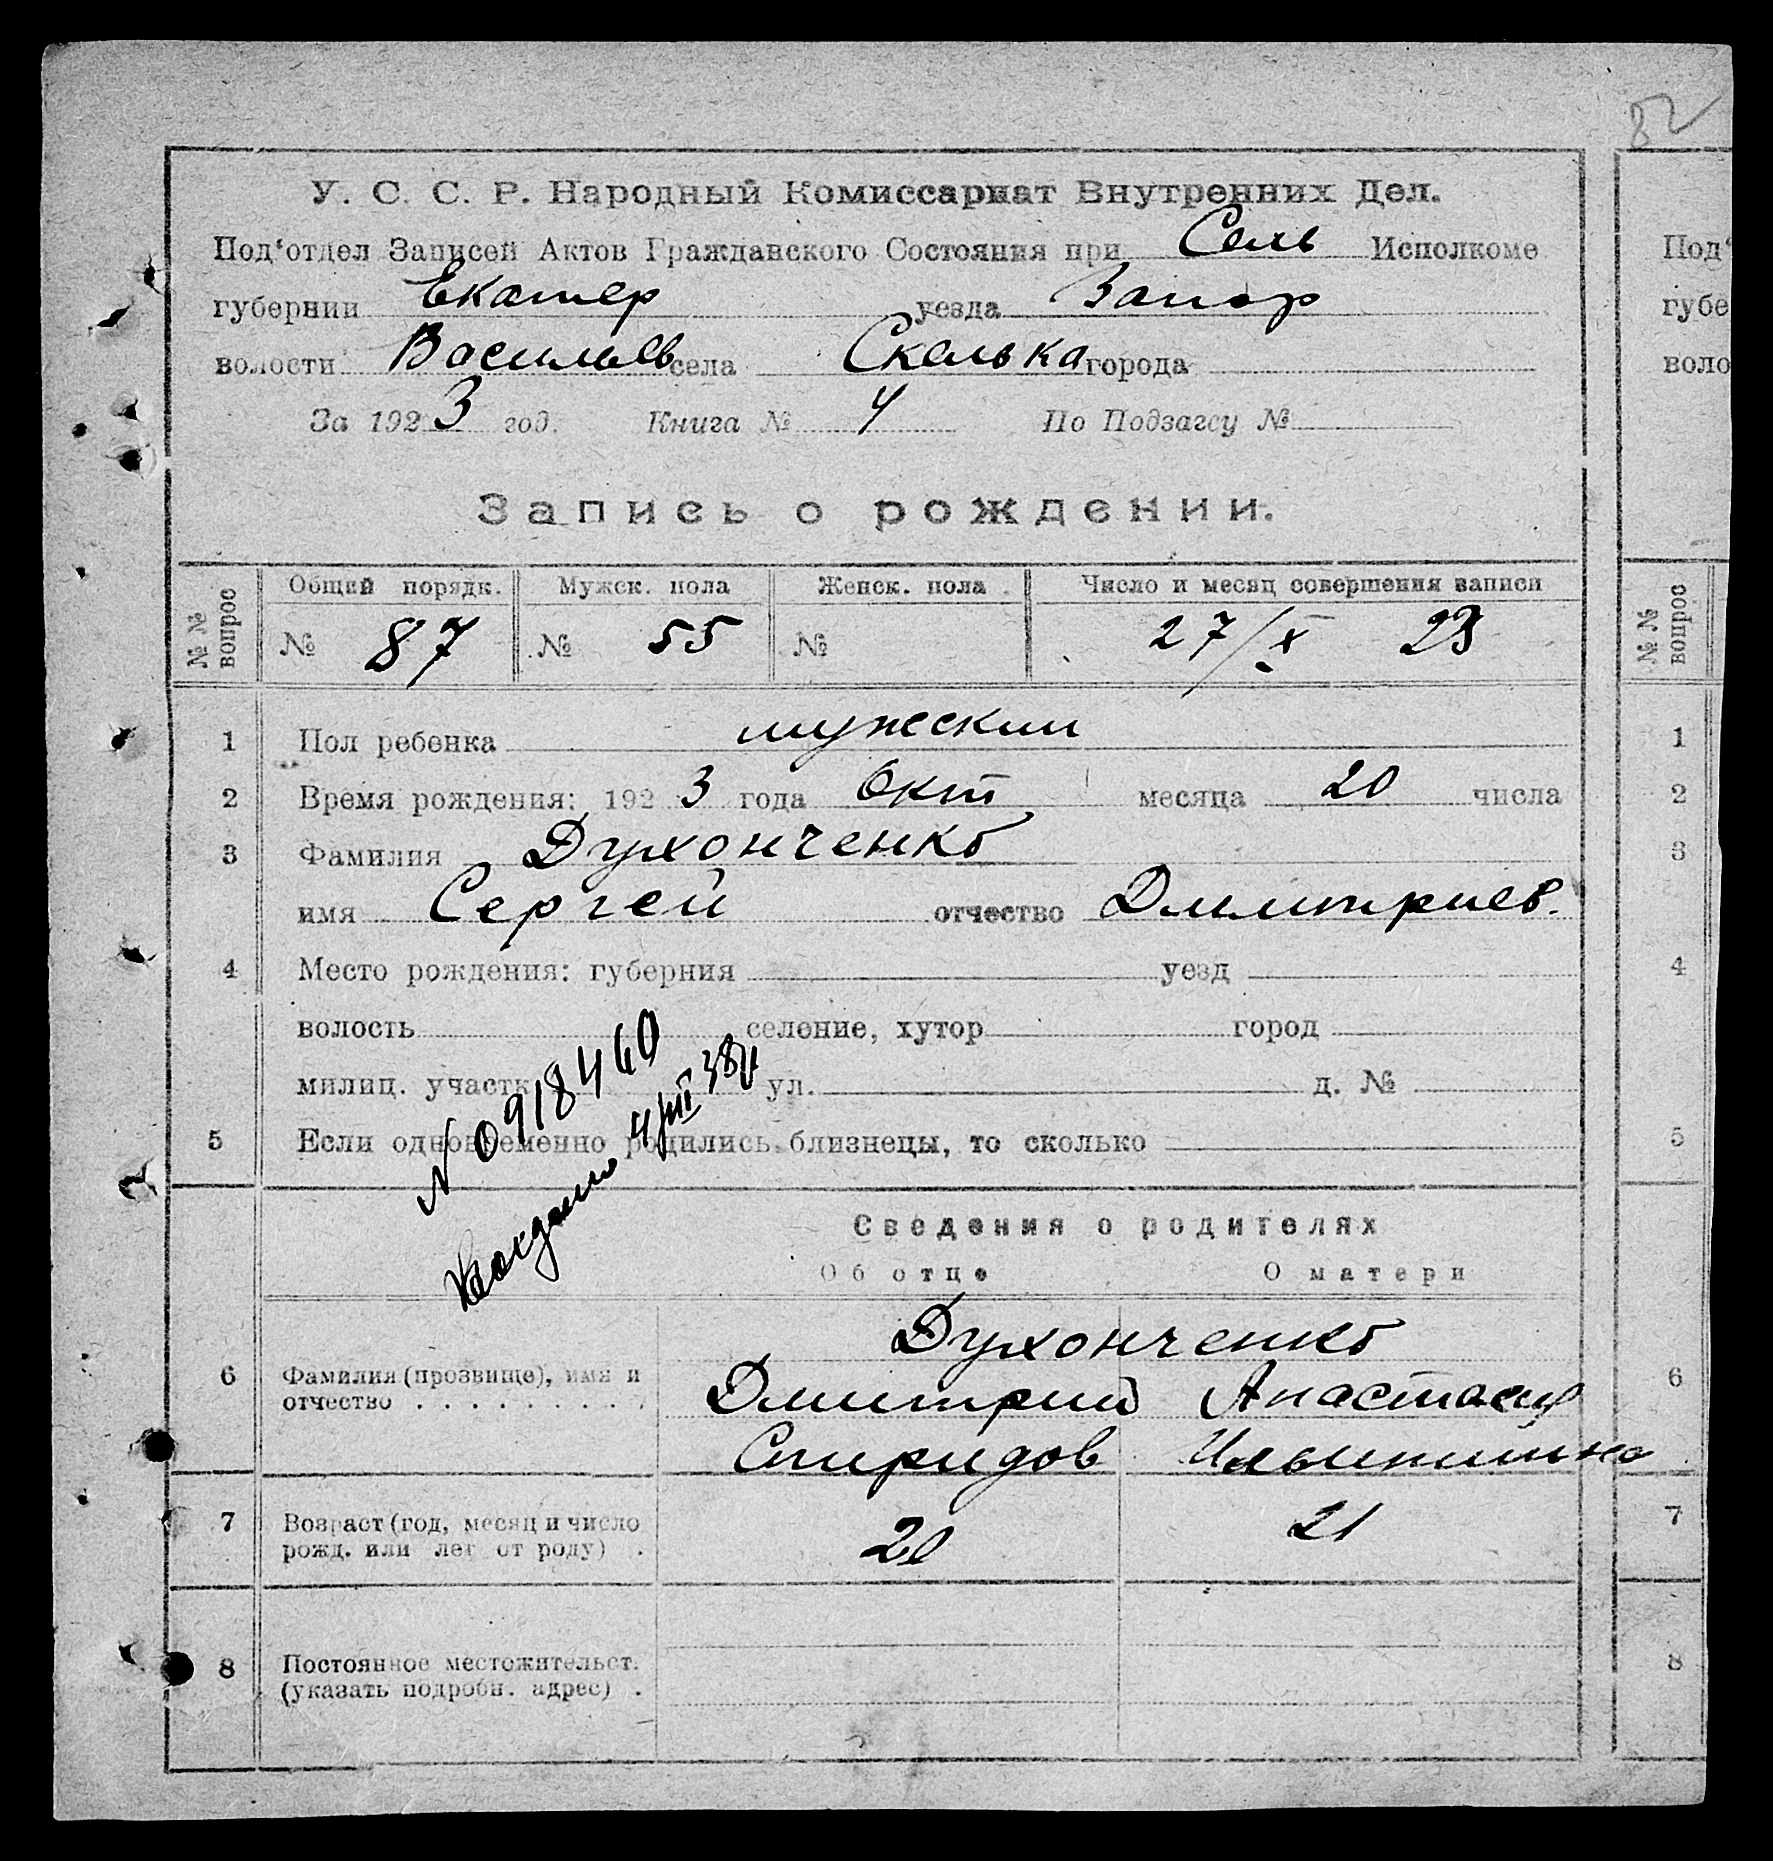 82
У. С. С. Р. Народный Комиссариат Внутренних Дел.
Под'отдел Записей Актов Гражданского Состояния при Сель Исполкоме
губернии Екатер уезда Запор
волости Васильев села Скелька города
За 1923 год. Книга № 4 По Подзагсу №
Запись о рождении.
№ № вопрос Общий порядк. Мужск. пола Женск. пола Число и месяц совершения записи
№ 87 № 55 № 27/X 23
1 Пол ребенка мужеский
2 Время рождения: 1923 года Окт месяца 20 числа
3 Фамилия Духонченко
имя Сергей отчество Дмитриев.
4 Место рождения: губерния уезд
волость селение, хутор город
милиц. участк ул. д. №
5 Если одновременно родились близнецы, то сколько
N 0918460
4/III 38
Сведения о родителях
Об отце О матери
Духонченко
6 Фамилия (прозвище), имя и отчество Дмитрий Анастасия
Спиридов
7 Возраст (год, месяц и число рожд. или лет от роду) 20 21
8 Постоянное местожительст. (указать подробн. адрес)
Под'
губе
воло
№ № вопрос
1
2
3
4
5
6
7
8